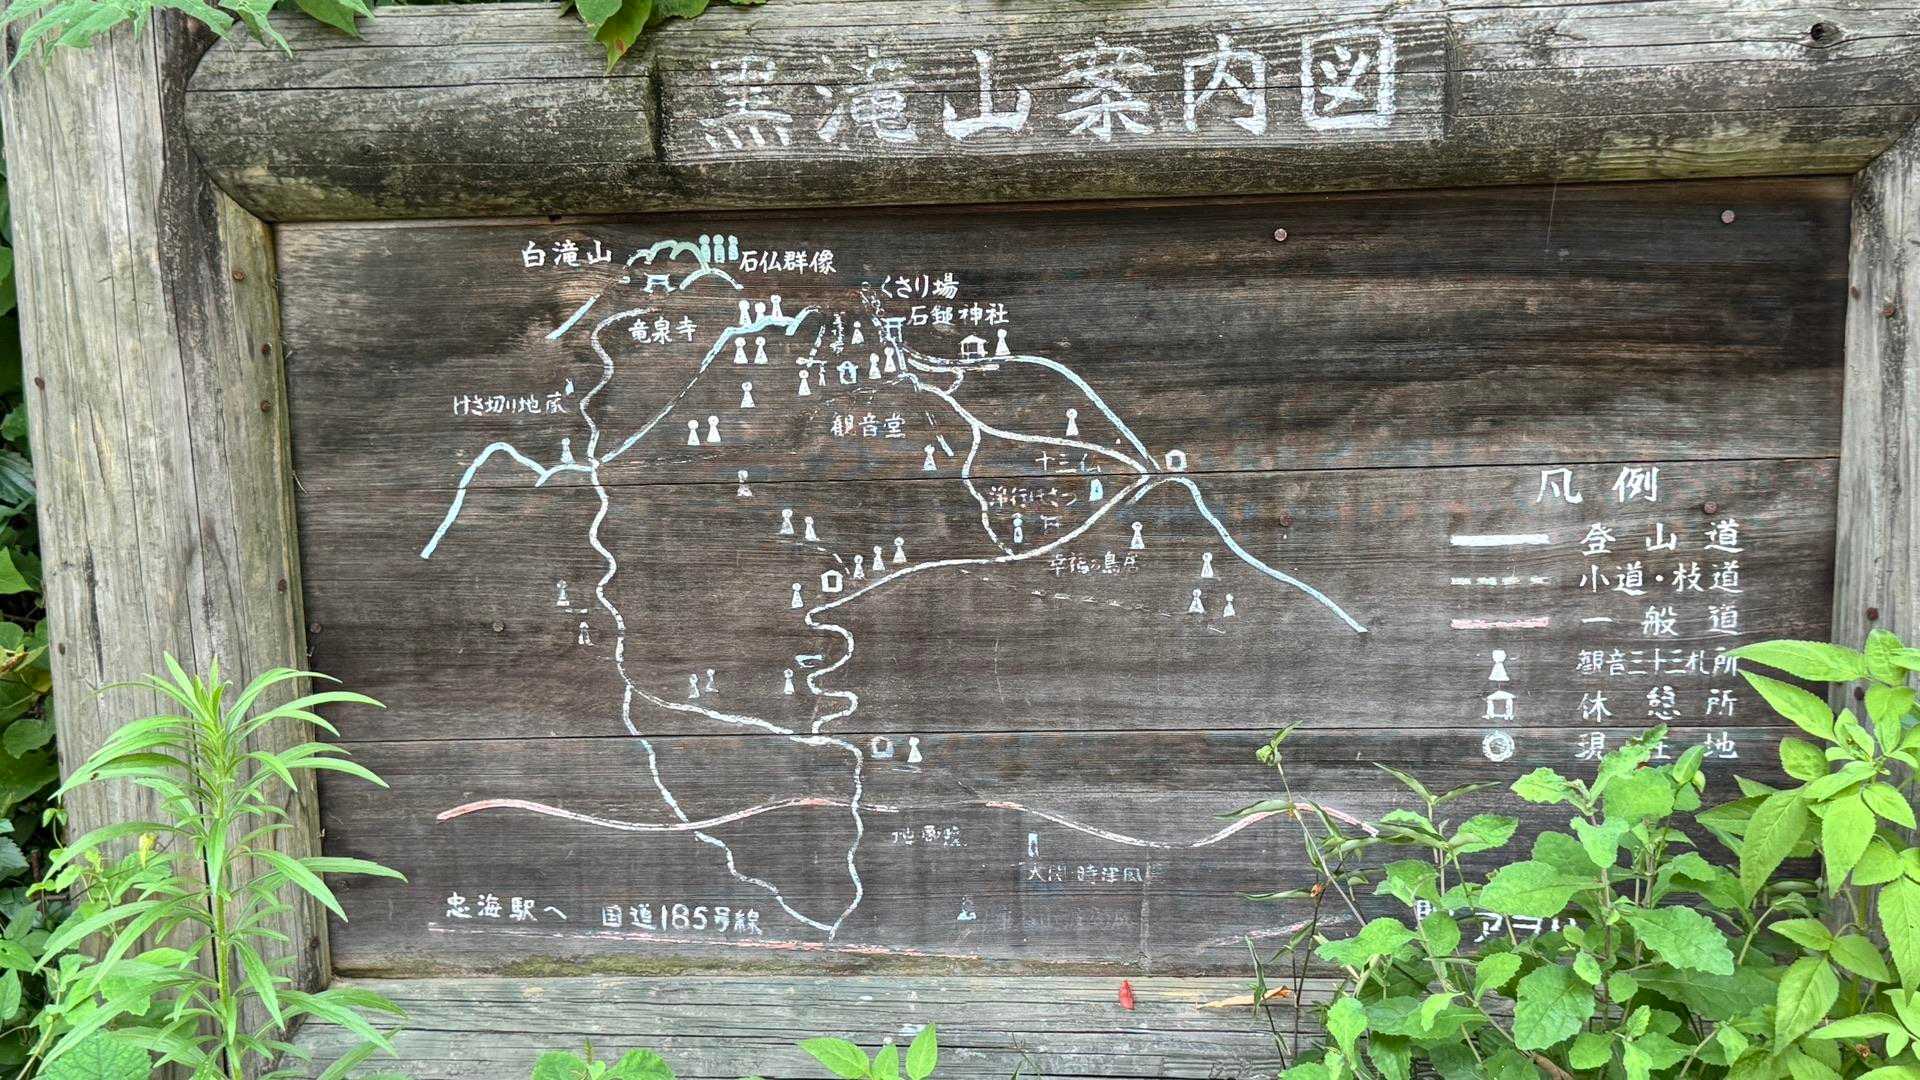 黒滝山案内図
白滝山
石仏群像
くさり場
石鎚神社
竜泉寺
けさ切り地蔵
観音堂
十三仏
幸福の鳥居
凡例
登山道
小道・枝道
一般道
観音三十三札所
休憩所
現在地
地蔵院
大関 時津風
忠海駅へ 国道185号線